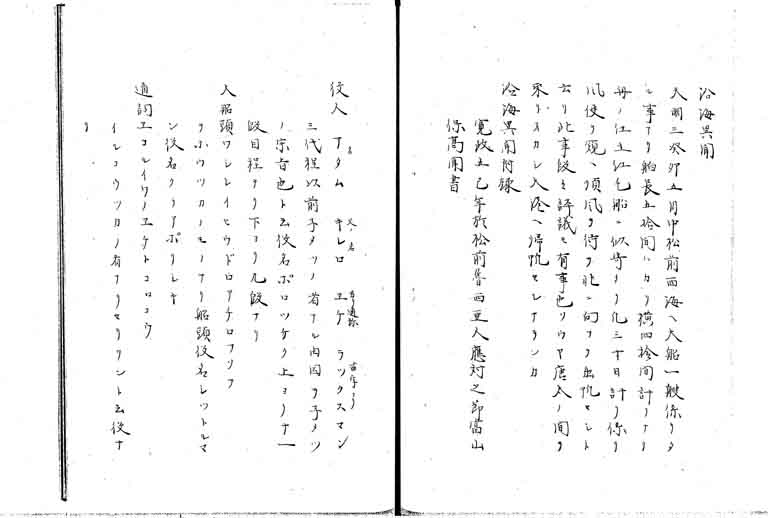 沿海異聞
天明三癸卯五月中松前西海ヘ大船一艘係リタ
ル事アリ船長五拾間ハカリ横四拾間計リナリ
毎ノ仕立紅毛船ニ似寄ナリ凡三十日計リ係リ
風便ヲ窺ヘ順風ヲ待ヲ北ニ向フヲ出帆セシト
云リ此事段々評議モ有事也ソウヤ唐人ノ聞ヲ
取リスカレ入港ヘ帰帆セシナランカ
沿海異聞附録
寛政五巳年於松前魯西亜人應対之節富山
保高聞書
役人 アタム 父ノ名 キレロ エケ 苗字ナリ ラックスマン
三代程以前子メツノ者ナレ内国ヲ子メツ
ノ宗旨也ト云役名ホロツケク上ヨリ十一
段目程ヨリ下ヨリ九段ナリ
人船頭ワシレイヒウドロアチロフツフ
ヲホウツカノモノナリ船頭役名レツトルマ
ン役名クラアポリレキ
通詞エコレイワノエケトコロコウ
イレコウツカノ者ナリセリワントト云役ナ
リ